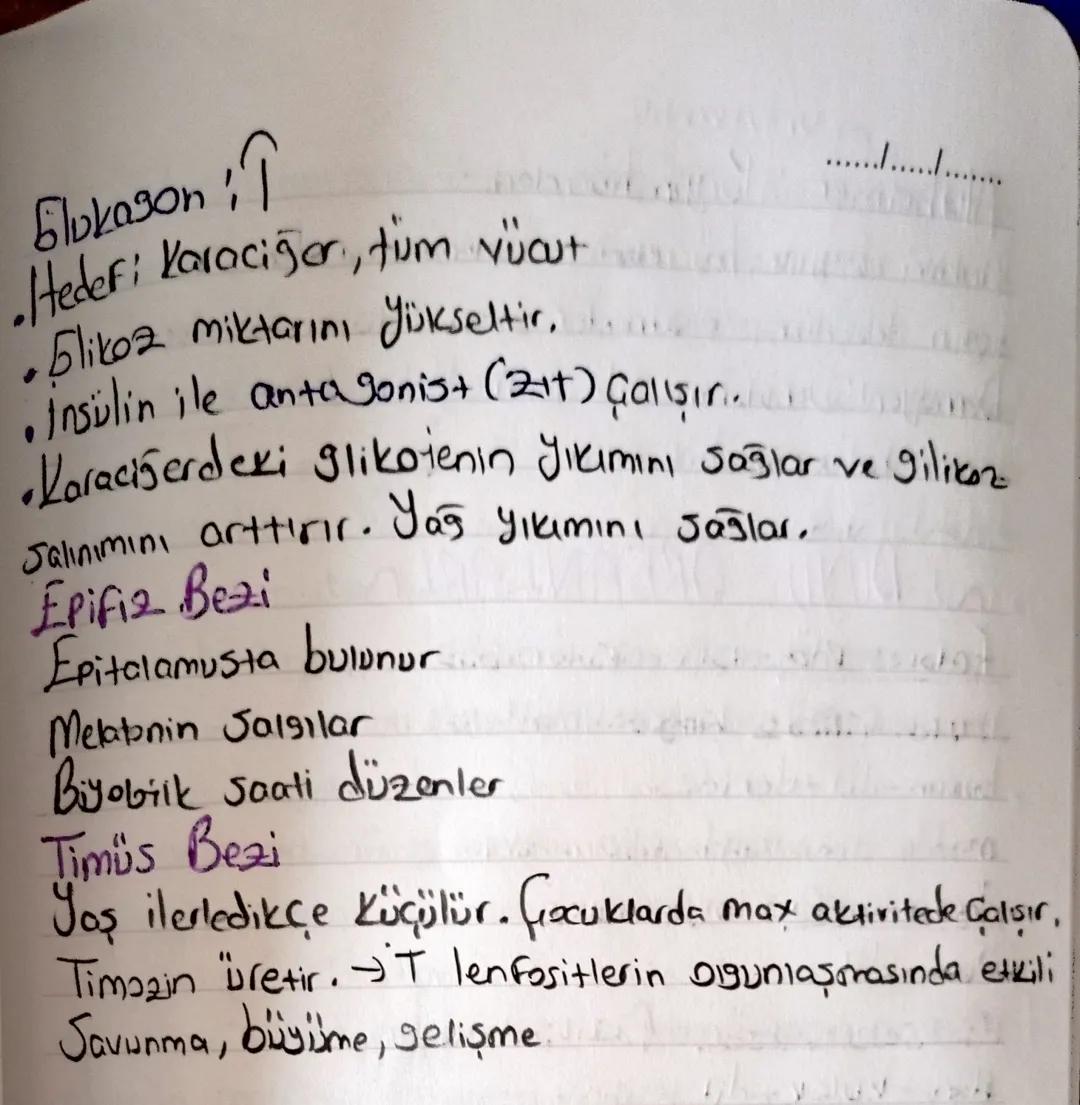 ....../....../.......
Glukagon : ↑
• Hedef: Karaciğer, tüm vücut
• Glikoz miktarını yükseltir.
• İnsülin ile antagonist (zıt) çalışır.
• Karaciğerdeki glikojenin yıkımını sağlar ve gilikoz
salınımını arttırır. Yağ yıkımını sağlar.
Epifiz Bezi
Epitalamusta bulunur
Melatonin salgılar
Biyolojik saati düzenler
Timüs Bezi
Yaş ilerledikçe küçülür. Çocuklarda max aktivitede çalışır.
Timozin üretir. → T lenfositlerin olgunlaşmasında etkili
Savunma, büyüme, gelişme